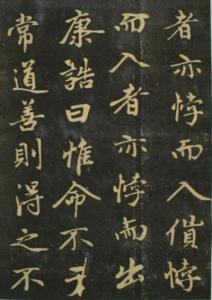 者亦悖而入貨悖
而入者亦悖而出
康誥曰惟命不于
常道善則得之不